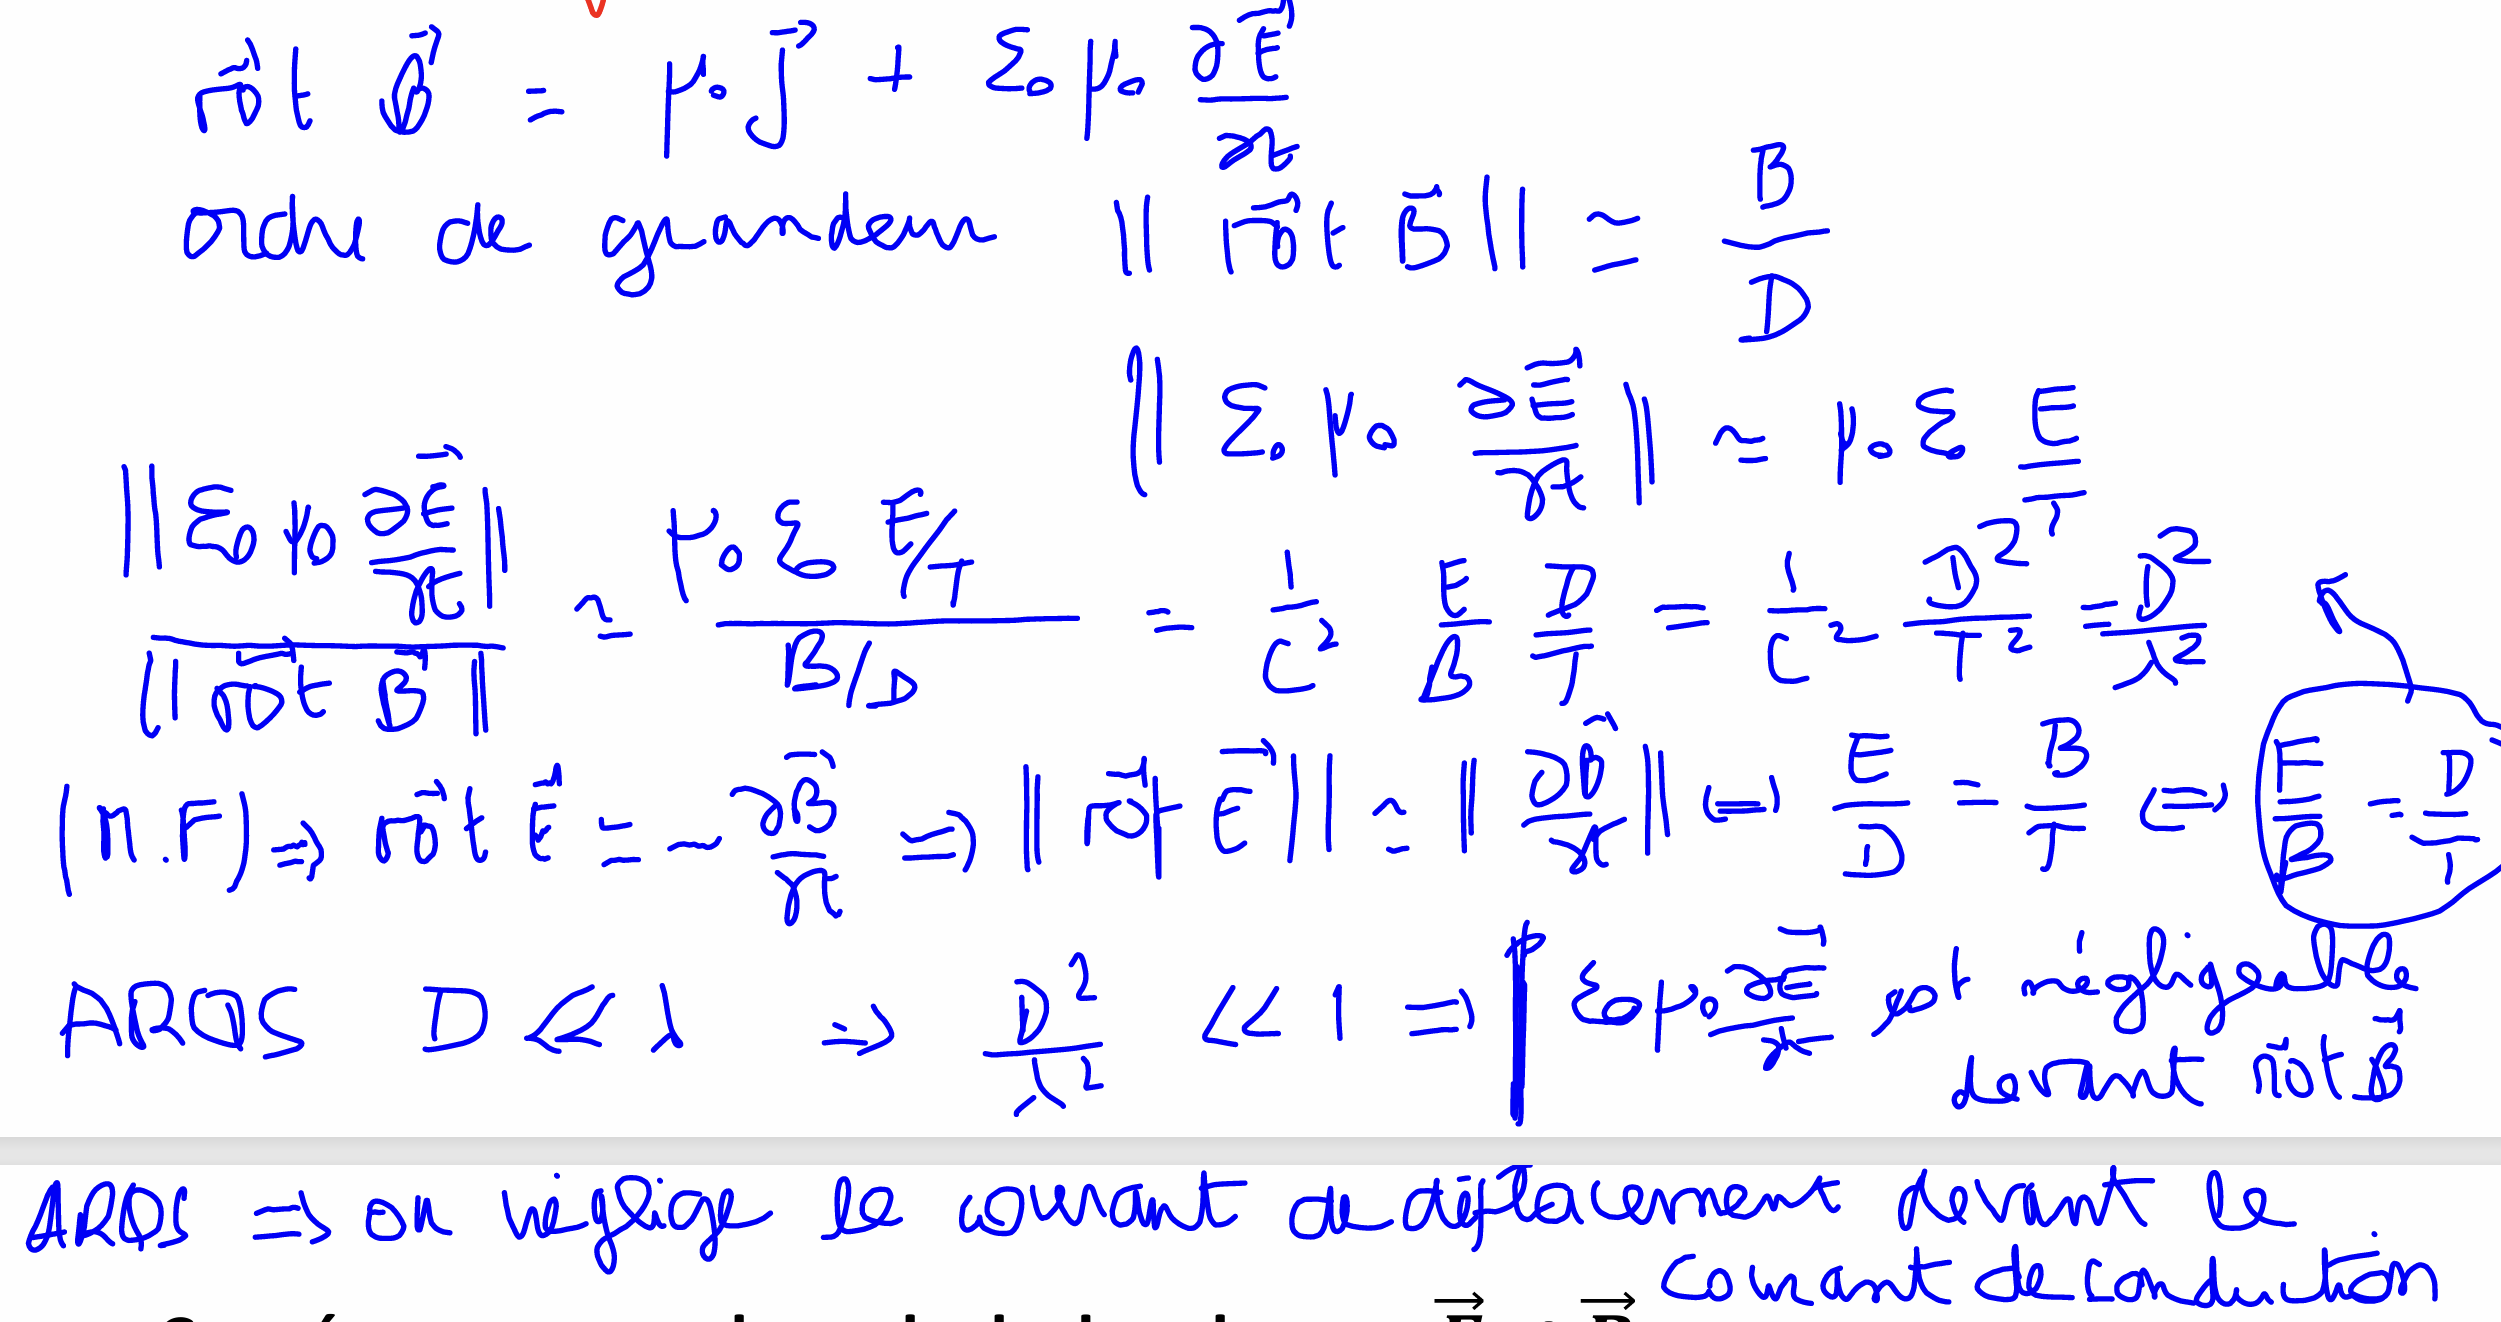 rot B⃗ = μ₀ J⃗ + ε₀ μ₀ ∂E⃗/∂t
ordre de grandeur ‖ rot B⃗ ‖ ≈ B/D
‖ ε₀ μ₀ ∂E⃗/∂t ‖ ≈ μ₀ ε₀ E/T
‖ε₀ μ₀ ∂E⃗/∂t‖ / ‖rot B⃗‖ ≈ (μ₀ ε₀ E/T) / (B/D) = 1/c² E/B D/T = 1/c² D²/T² = D²/λ²
(M.F) → rot E⃗ = - ∂B⃗/∂t ⇒ ‖ rot E⃗ ‖ ≈ ‖ ∂B⃗/∂t ‖ ⇔ E/D = B/T ⇔ E/B = D/T
ARQS D << λ ⇒ D²/λ² << 1 ⇒ ε₀ μ₀ ∂E⃗/∂t est négligeable
devant rot B⃗
ARQS ⇒ on néglige le courant de déplacement devant le
courant de conduction